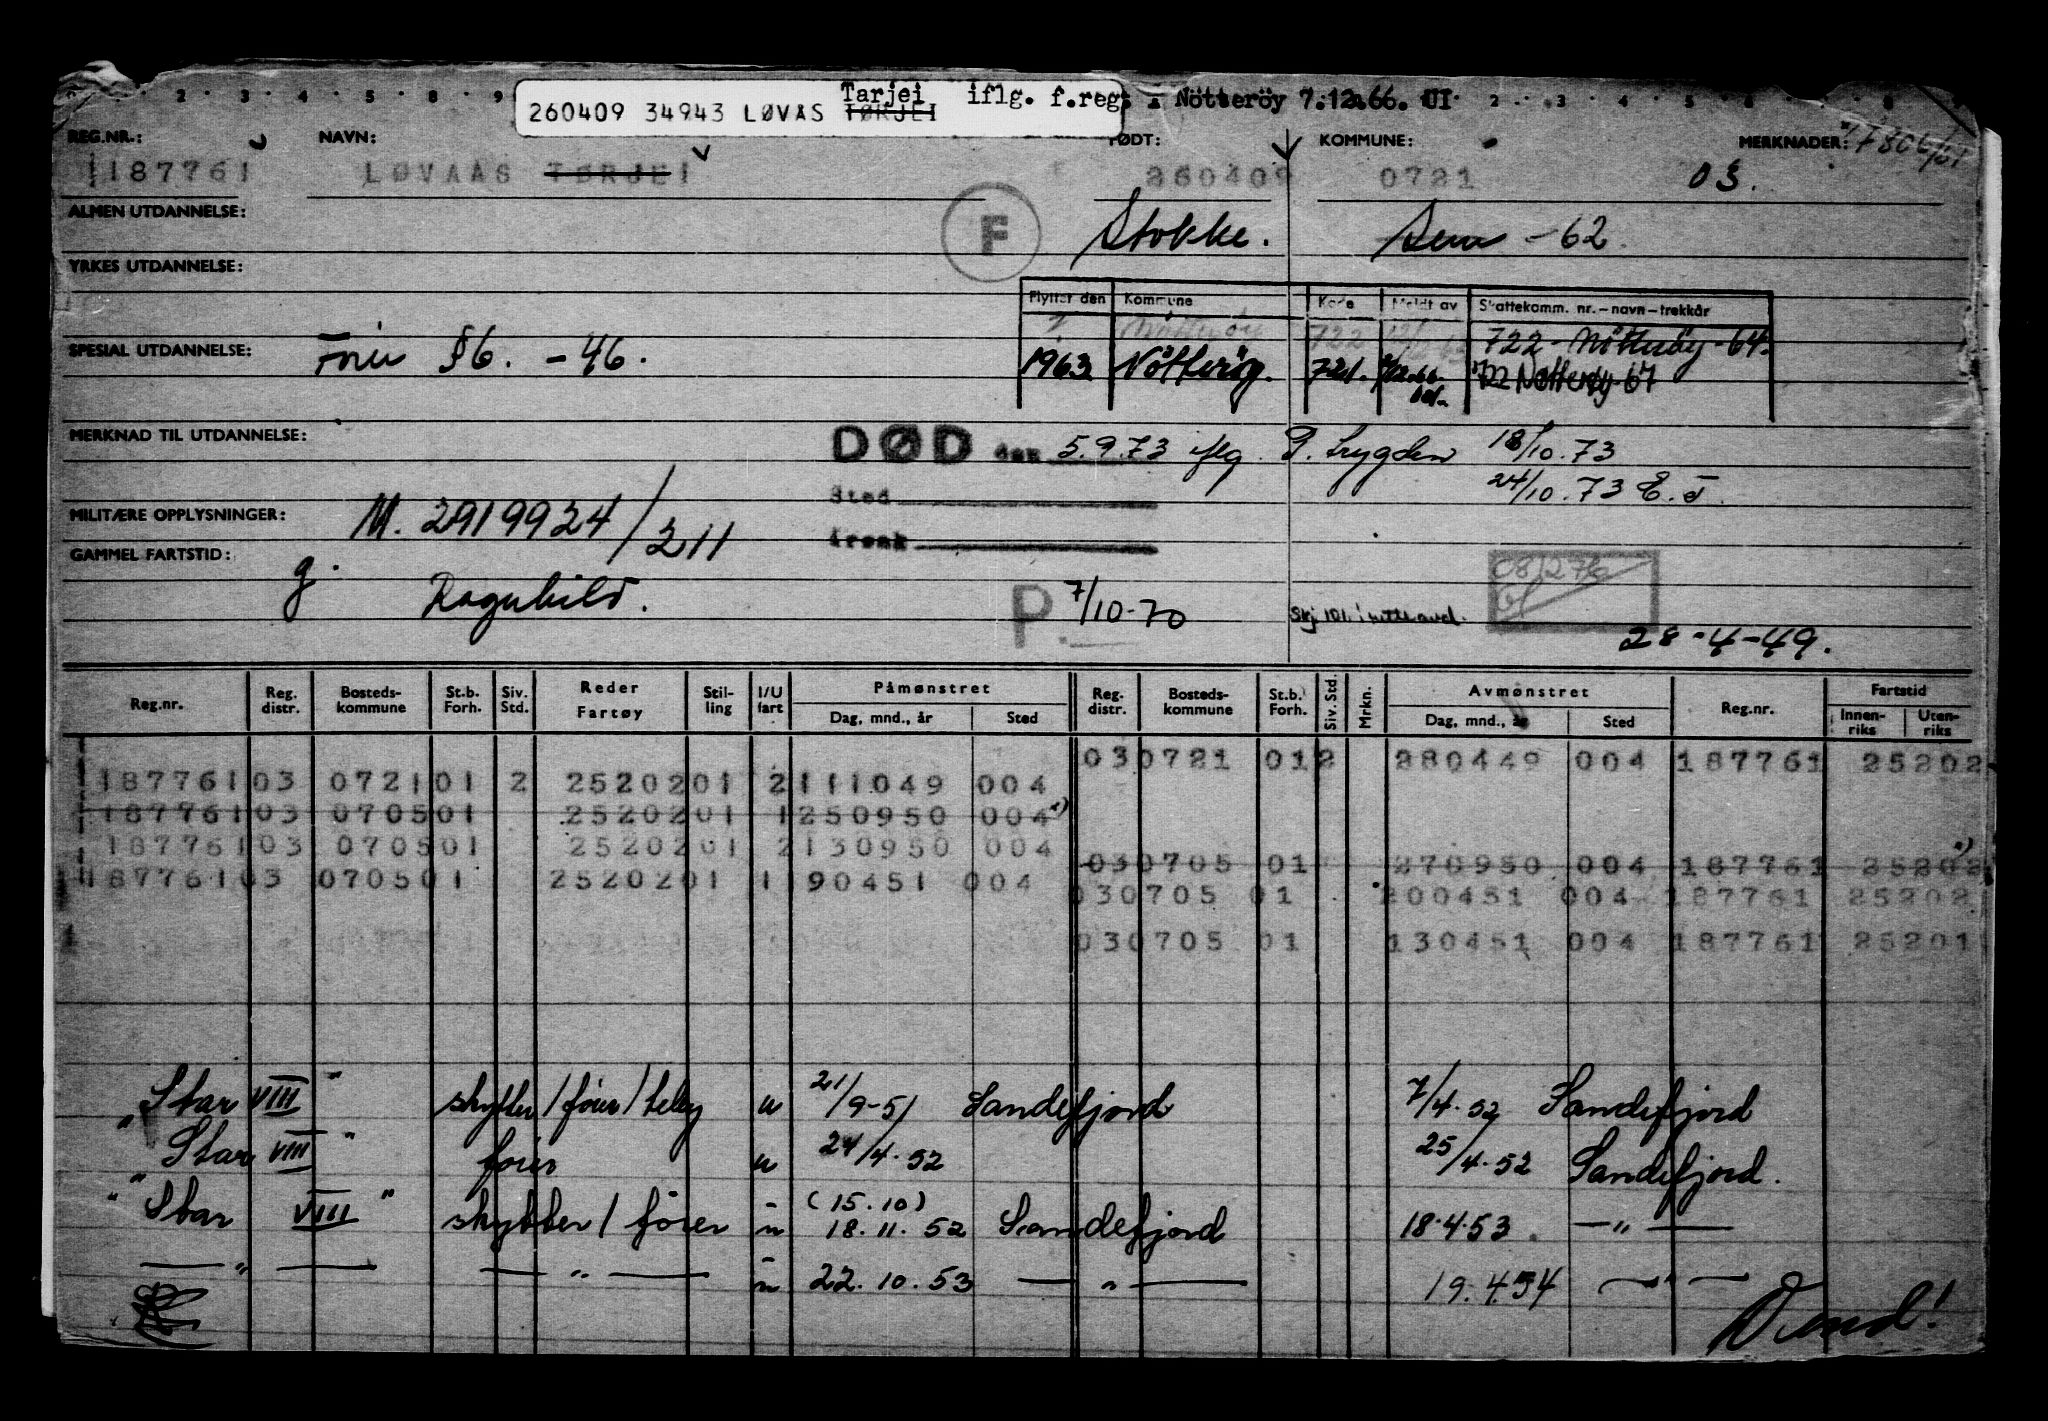 Tarjei iflg. f.reg. i Nötteröy 7.12.66. UI
260409 34943 LØVAS TØRJEI
REG.NR.: NAVN: FØDT: KOMMUNE: MERKNADER:
187761 LØVAAS TØRJEI 260409 0721 03.
ALMEN UTDANNELSE: F Stokke. Sem - 62
YRKES UTDANNELSE:
Flyttet den Kommune Kode Meldt av Skattekomm. nr.-navn-trekkår
722 Nötteröy - 64.
SPESIAL UTDANNELSE: Förer §6. - 46. 1963 Nötteröy. 721. 722 Nötteröy 67
MERKNAD TIL UTDANNELSE: DØD den 5.9.73 iflg P. trygden 18/10.73
Sted 24/10.73 E.J.
MILITÆRE OPPLYSNINGER: M. 2919924/211
Årsak
GAMMEL FARTSTID: g. Ragnhild. P. 7/10-70
28-4-49.
Reg.nr. Reg. distr. Bosteds-kommune St.b. Forh. Siv. Std. Reder Fartøy Stil-ling I/U fart Påmønstret Dag, mnd., år Sted Reg. distr. Bosteds-kommune St.b. Forh. Siv. Std. Mrkn. Avmønstret Dag, mnd., år Sted Reg.nr. Fartstid Innen-riks Uten-riks
030721 012 280449 004 187761 25202
187761 03 0721 01 2 2520201 2 111049 004
187761 03 0705 01 2520201 1 250950 004
187761 03 0705 01 2520201 2 130950 004
030705 01 270950 004 187761 25202
187761 03 0705 01 2520201 1 90451 004
030705 01 200451 004 187761 25202
030705 01 130451 004 187761 25201
"Star VIII" skytter/förer/teleg u 21/9-51 Sandefjord 7/4.52 Sandefjord
"Star VIII" förer u 24/4.52 25/4.52 Sandefjord.
"Star VIII" skytter/förer u (15.10) 18.11.52 Sandefjord 18.4.53. — " —
— " — — " — u 22.10.53 — " — 19.4.54 — " —